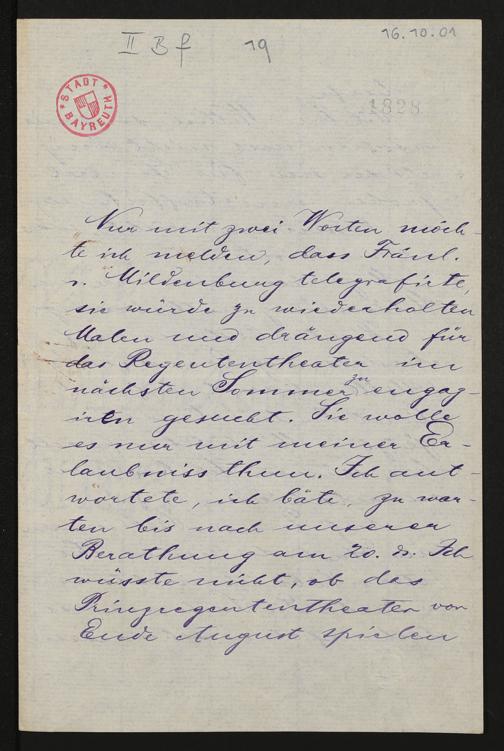 16.10.01
II B f 19
1828
STADT BAYREUTH
Nur mit zwei Worten möch-
te ich melden, dass Fräul.
v. Mildenburg telegrafirte,
sie würde zu wiederholten
Malen und drängend für
das Regententheater im
nächsten Sommer zu engag-
iren gesucht. Sie wolle
es nur mit meiner Er-
laubniss thun. Ich ant-
wortete, ich bäte, zu war-
ten bis nach unserer
Berathung am 20. ds. Ich
wüsste nicht, ob das
Prinzregententheater vor
Ende August spielen